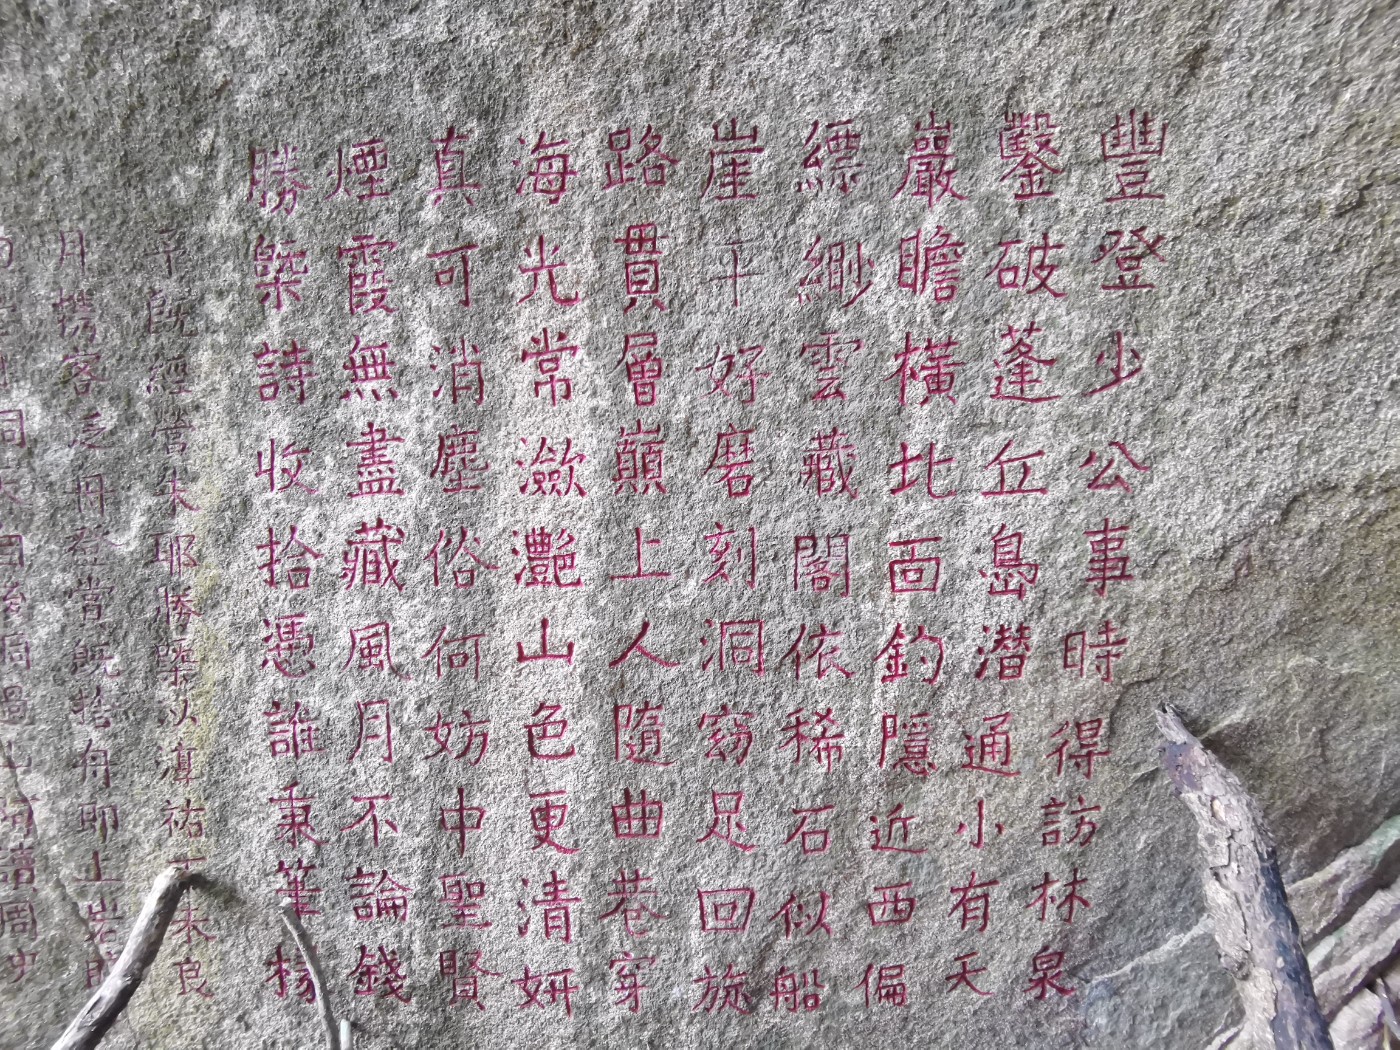 豐登少公事時得訪林泉
鑿破蓬丘島潛通小有天
巖瞻橫北面釣隱近西偏
縹緲雲藏閣依稀石似船
崖平好磨刻洞窈足回旋
路貫層巔上人隨曲巷穿
海光常瀲灩山色更清妍
真可消塵俗何妨中聖賢
煙霞無盡藏風月不論錢
勝槩詩收拾憑誰秉筆椽
予既經營朱耶勝槩以淳祐丁未良
月携客泛舟登嘗既捨舟即上岩